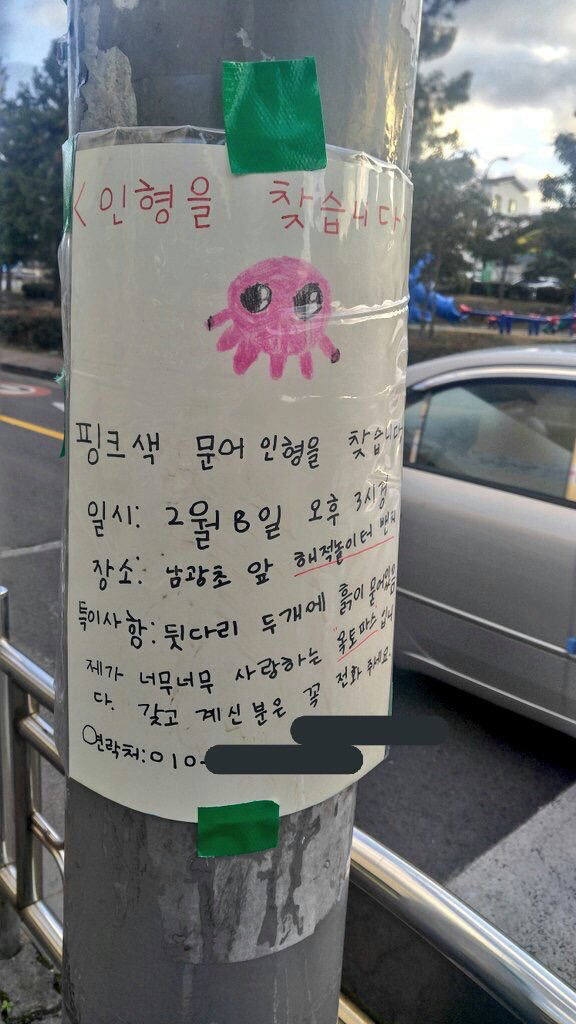 <인형을 찾습니다
핑크색 문어 인형을 찾습니다
일시: 2월 8일 오후 3시경
장소: 남광초 앞 해적놀이터 벤치
특이사항: 뒷다리 두개에 흙이 묻어있음
제가 너무너무 사랑하는 "옥토파스"입니
다. 갖고 계신 분은 꼭 전화 주세요.
연락처: 010-